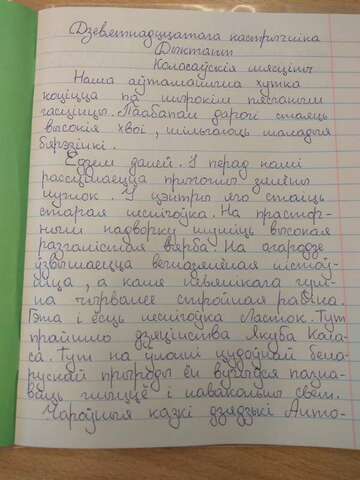 Дзеветнадццатага кастрычніка
Дыктант
Коласаўскія мясціны
Наша аўтамашына хутка
коціцца па шырокім пясчаным
гасцінцы. Паабапал дарогі стаяць
высокія хвоі, мільгаюць маладыя
бярэзінкі.
Едзем далей. І перад намі
рассцілаецца прыгожы зялёны
мурок. У цэнтры яго стаіць
старая леснічоўка. На прастор-
ным надворку шуміць высокая
разгалістая вярба. На агародзе
ўзвышаецца велізарная лістоў-
ніца, а каля невялікага гум-
на чырванее стройная рабіна.
Гэта і ёсць леснічоўка Ласток. Тут
прайшло дзяцінства Якуба Кала-
са. Тут на ўлонні цудоўнай бела-
рускай прыроды ён вучыўся пазна-
ваць жыццё і навакольны свет.
Чароўныя казкі дзядзькі Анто-